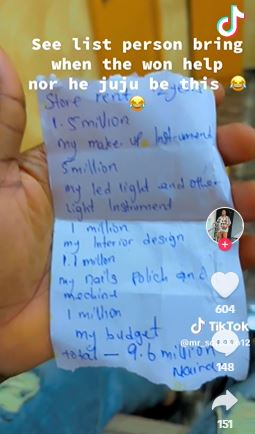 TikTok
See list person bring
when the won help
nor he juju be this 😂
😂
Store rent
1.5 million
my make-up Instrument
5 million
my led light and other
light Instrument
1 million
my Interior design
1.1 million
my nails Polich and
mechine
1 million
my budget
total — 9.6 million
Naira
604
148
151
TikTok